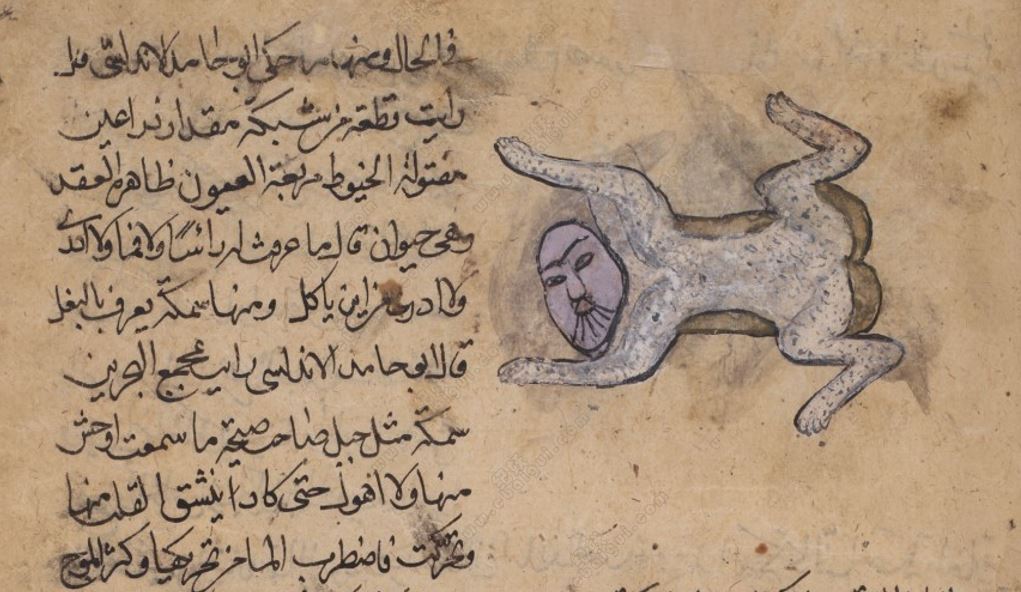 في الحال ومنها ما حكى ابو حامد الاندلسي قال
رايت قطعة من شبكة مقدار ذراعين
مفتولة الخيوط مربعة العيون ظاهرة العقد
وهي حيوان قال ما عرفت له رأسًا ولا فما ولا ادري
ولا ادري من اين ياكل ومنها سمكة يعرف بالبغل
قال ابو حامد الاندلسي رايت بمجمع البحرين
سمكة مثل جبل صاحت صيحة ما سمعت اوحش
منها ولا اهول حتى كاد ا ينشق القلب منها
وتحركت فاضطرب الما من تحريكها وكثر الموج